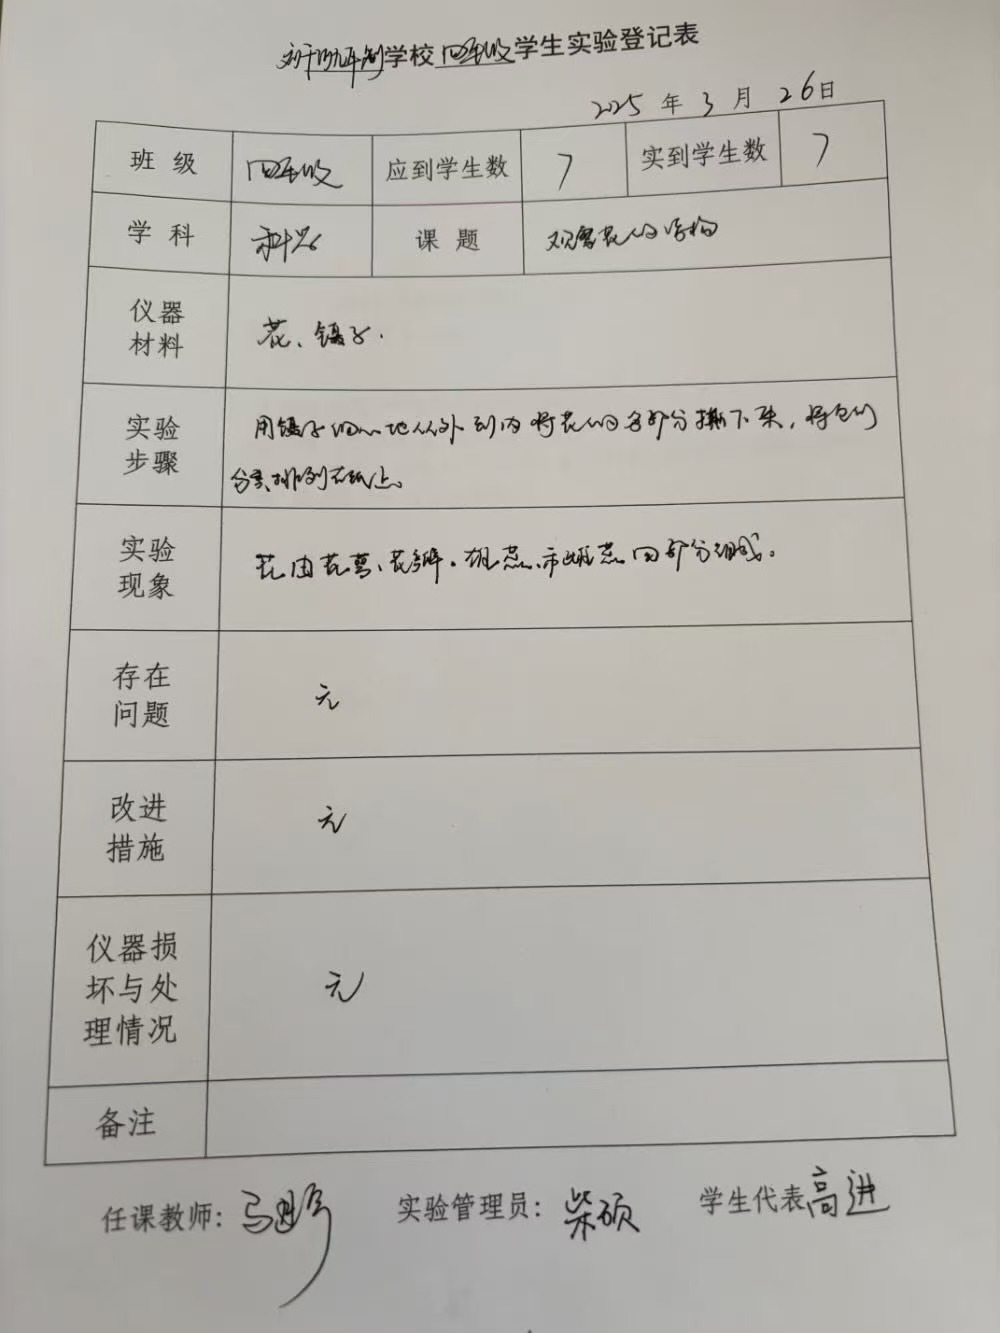 学校四年级学生实验登记表
2025 年 3 月 26日
班 级 四年级 应到学生数 7 实到学生数 7
学 科 科学 课 题 观察花的结构
仪器
材料
花、镊子.
实验
步骤
用镊子细心地从外到内将花的各部分撕下来，将它们
分类排列在纸上。
实验
现象
花由花萼、花瓣、雄蕊、雌蕊四部分组成。
存在
问题
无
改进
措施
无
仪器损
坏与处
理情况
无
备注
任课教师：马 实验管理员：柴硕 学生代表高进